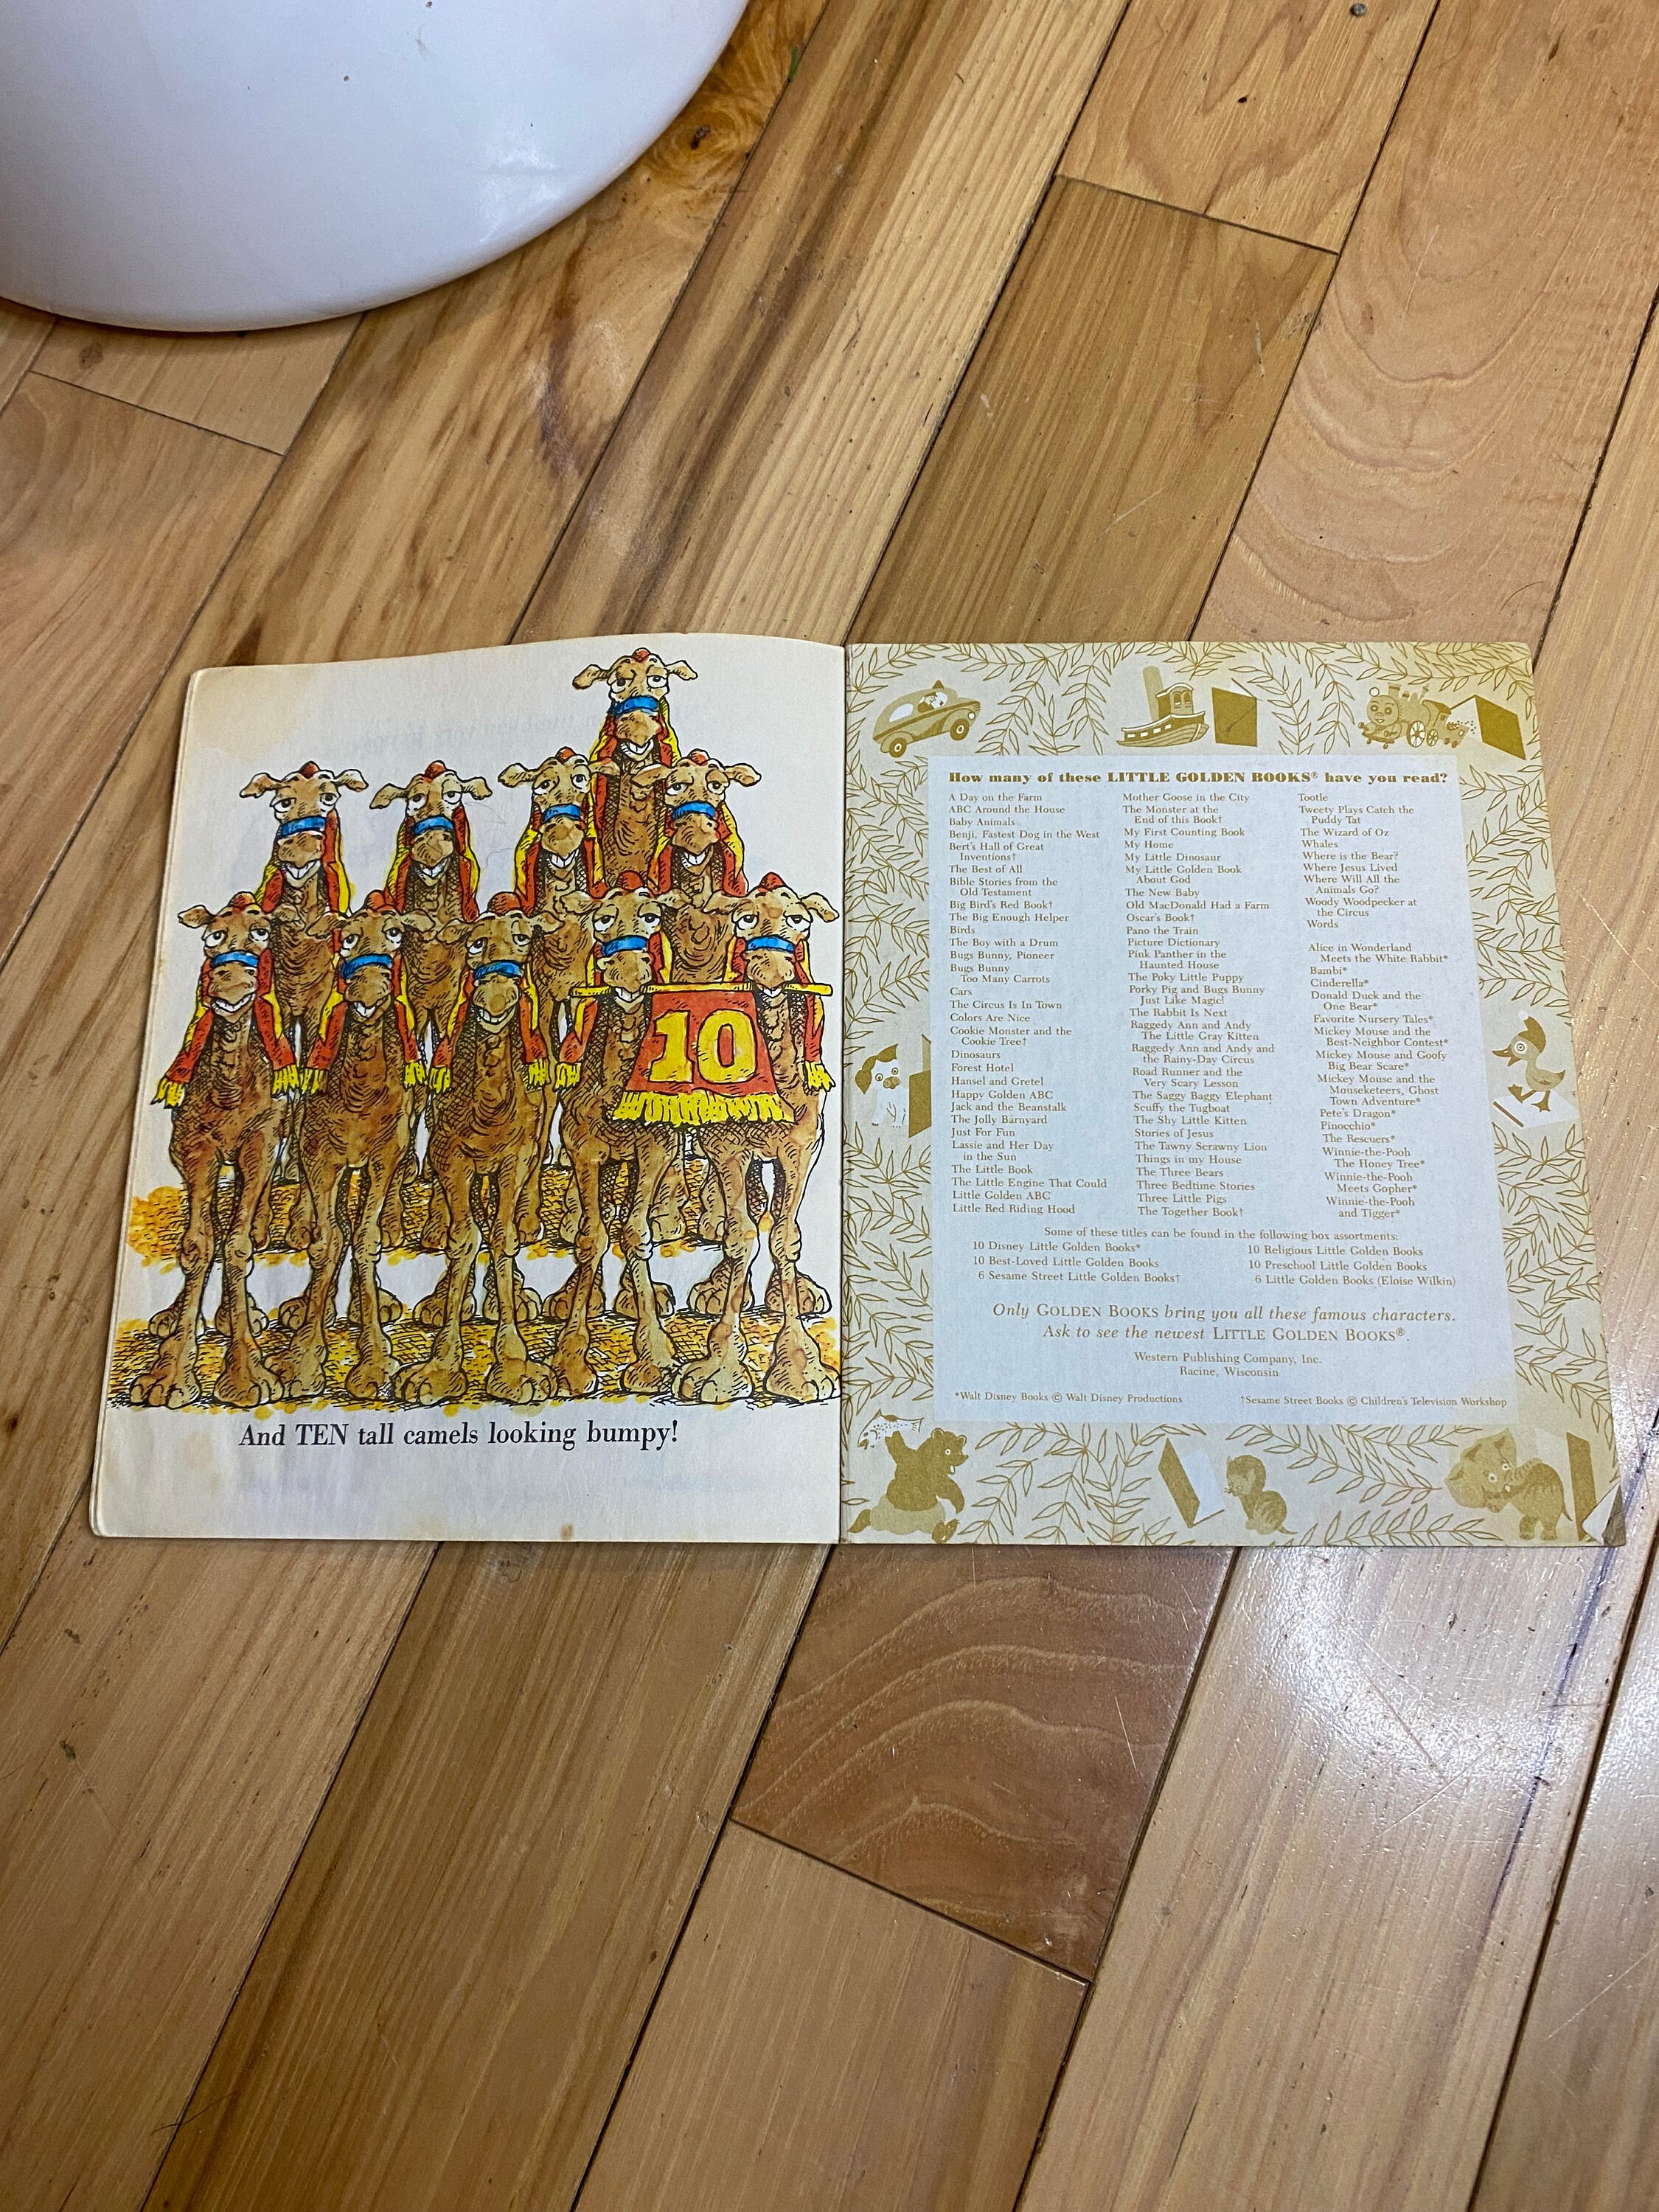 10
And TEN tall camels looking bumpy!
How many of these LITTLE GOLDEN BOOKS® have you read?
A Day on the Farm
ABC Around the House
Baby Animals
Benji, Fastest Dog in the West
Bert's Hall of Great
Inventions†
The Best of All
Bible Stories from the
Old Testament
Big Bird's Red Book†
The Big Enough Helper
Birds
The Boy with a Drum
Bugs Bunny, Pioneer
Bugs Bunny
Too Many Carrots
Cars
The Circus Is In Town
Colors Are Nice
Cookie Monster and the
Cookie Tree†
Dinosaurs
Forest Hotel
Hansel and Gretel
Happy Golden ABC
Jack and the Beanstalk
The Jolly Barnyard
Just For Fun
Lassie and Her Day
in the Sun
The Little Book
The Little Engine That Could
Little Golden ABC
Little Red Riding Hood
Mother Goose in the City
The Monster at the
End of this Book†
My First Counting Book
My Home
My Little Dinosaur
My Little Golden Book
About God
The New Baby
Old MacDonald Had a Farm
Oscar's Book†
Pano the Train
Picture Dictionary
Pink Panther in the
Haunted House
The Poky Little Puppy
Porky Pig and Bugs Bunny
Just Like Magic!
The Rabbit Is Next
Raggedy Ann and Andy
The Little Gray Kitten
Raggedy Ann and Andy and
the Rainy-Day Circus
Road Runner and the
Very Scary Lesson
The Saggy Baggy Elephant
Scuffy the Tugboat
The Shy Little Kitten
Stories of Jesus
The Tawny Scrawny Lion
Things in my House
The Three Bears
Three Bedtime Stories
Three Little Pigs
The Together Book†
Tootle
Tweety Plays Catch the
Puddy Tat
The Wizard of Oz
Whales
Where is the Bear?
Where Jesus Lived
Where Will All the
Animals Go?
Woody Woodpecker at
the Circus
Words
Alice in Wonderland
Meets the White Rabbit*
Bambi*
Cinderella*
Donald Duck and the
One Bear*
Favorite Nursery Tales*
Mickey Mouse and the
Best-Neighbor Contest*
Mickey Mouse and Goofy
Big Bear Scare*
Mickey Mouse and the
Mouseketeers, Ghost
Town Adventure*
Pete's Dragon*
Pinocchio*
The Rescuers*
Winnie-the-Pooh
The Honey Tree*
Winnie-the-Pooh
Meets Gopher*
Winnie-the-Pooh
and Tigger*
Some of these titles can be found in the following box assortments:
10 Disney Little Golden Books*
10 Best-Loved Little Golden Books
6 Sesame Street Little Golden Books†
10 Religious Little Golden Books
10 Preschool Little Golden Books
6 Little Golden Books (Eloise Wilkin)
Only GOLDEN BOOKS bring you all these famous characters.
Ask to see the newest LITTLE GOLDEN BOOKS®.
Western Publishing Company, Inc.
Racine, Wisconsin
*Walt Disney Books © Walt Disney Productions
†Sesame Street Books © Children's Television Workshop